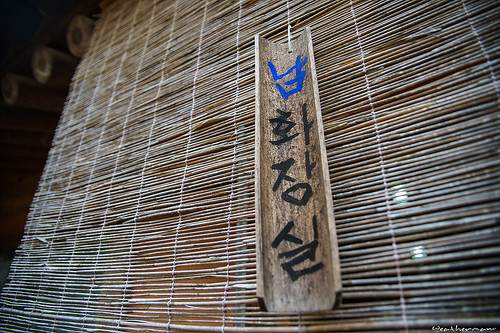 남화장실
Weatherman